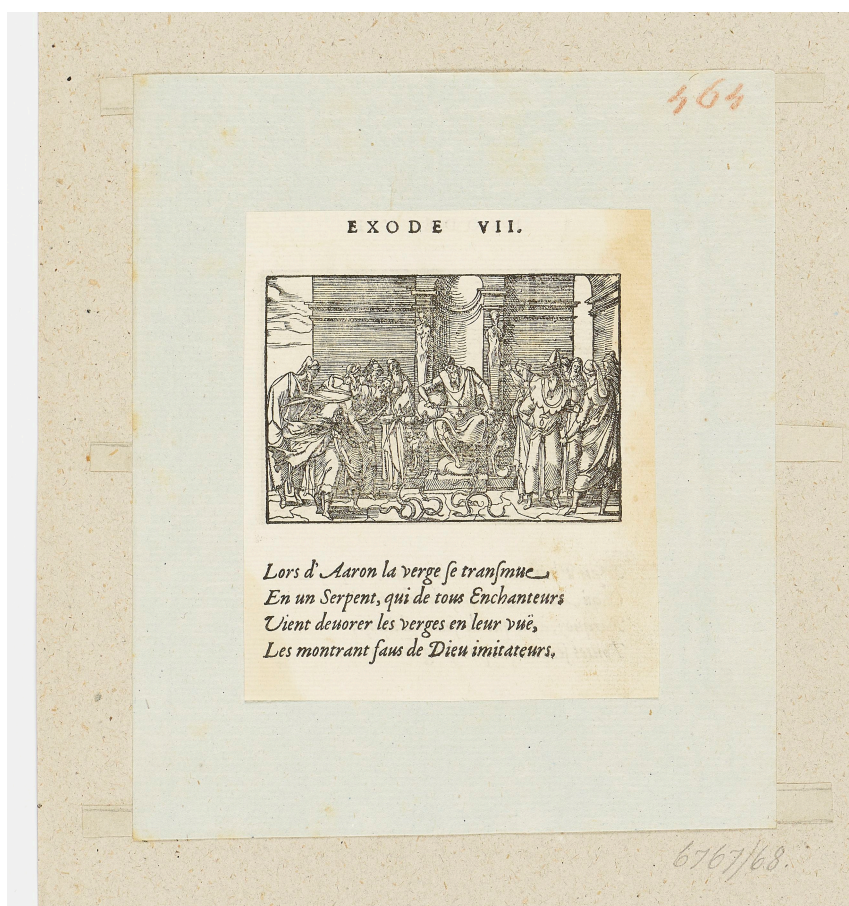 464
EXODE VII.
Lors d'Aaron la verge ſe tranſmue
En un Serpent, qui de tous Enchanteurs
Vient deuorer les verges en leur vuë,
Les montrant faus de Dieu imitateurs.
6767/68.